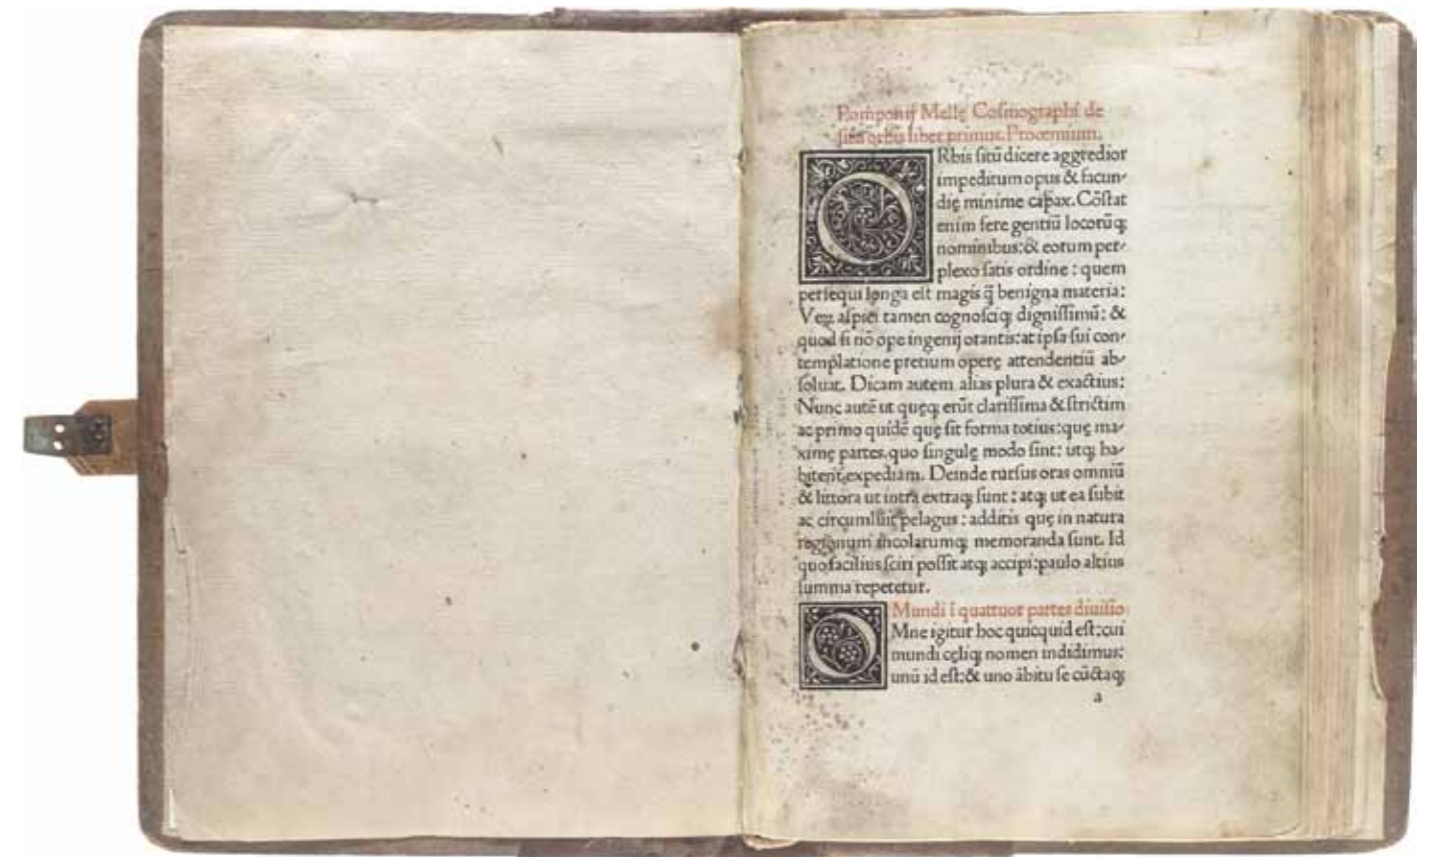 Pomponij Mellę Cosmographi de
situ orbis liber primus. Prooemium.
ORbis sitū dicere aggredior
impeditum opus & facun-
dię minime capax. Cōstat
enim fere gentiū locorūq;
nominibus: & eorum per-
plexo satis ordine: quem
persequi longa est magis q̄ benigna materia:
Veꝝ aspici tamen cognosciq; dignissimū: &
quod si nō ope ingenij orantis: at ipsa sui con-
templatione pretium operę attendentiū ab-
soluat. Dicam autem alias plura & exactius:
Nunc autē ut quęq; erūt clarissima & strictim
ac primo quidē quę sit forma totius: quę ma-
ximę partes. quo singulę modo sint: utq; ha-
bitent, expediam. Deinde rursus oras omniū
& littora ut intra extraq; sunt: atq; ut ea subit
ac circumluit pelagus: additis quę in natura
regionum incolarumq; memoranda sunt. Id
quo facilius sciri possit atq; accipi: paulo altius
summa repetetur.
Mundi ī quattuor partes diuisio
OMne igitur hoc quicquid est: cui
mundi cęliq; nomen indidimus:
unū id est: & uno ābitu se cūctaq;
a